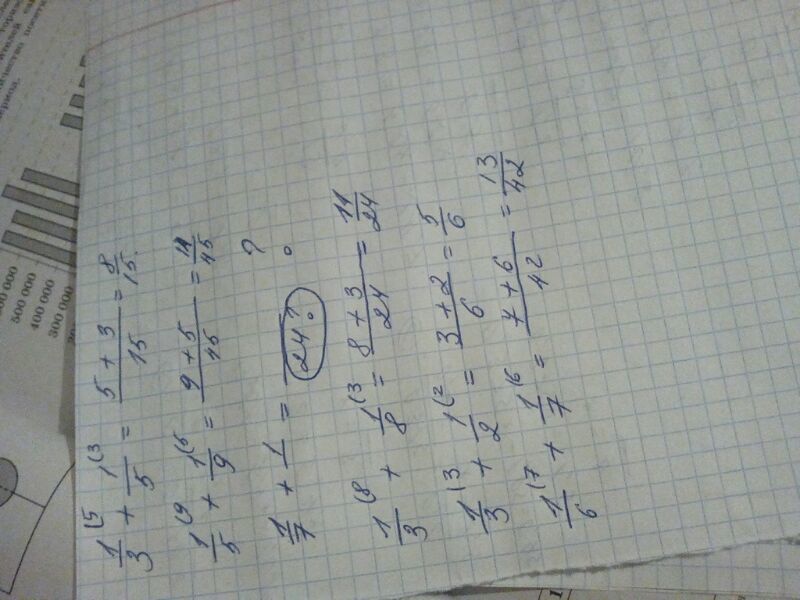 1/3 (5 + 1/5 (3 = 5+3/15 = 8/15.
1/5 (9 + 1/9 (5 = 9+5/45 = 14/45
1/7 + 1/ = /24? ?
1/3 (8 + 1/8 (3 = 8+3/24 = 11/24
1/3 (3 + 1/2 (2 = 3+2/6 = 5/6
1/6 (7 + 1/7 (6 = 7+6/42 = 13/42
500 000
400 000
300 000